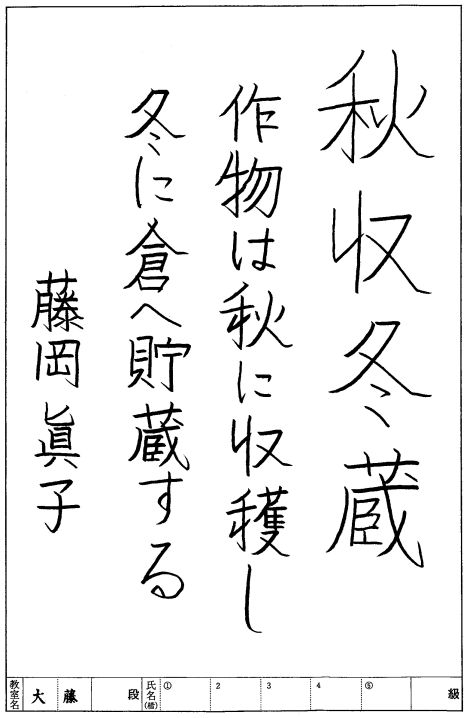 秋収冬蔵
作物は秋に収穫し
冬に倉へ貯蔵する
藤岡眞子
教室名 大 藤 段 氏名(楷) ① 2 3 4 ⑤ 級